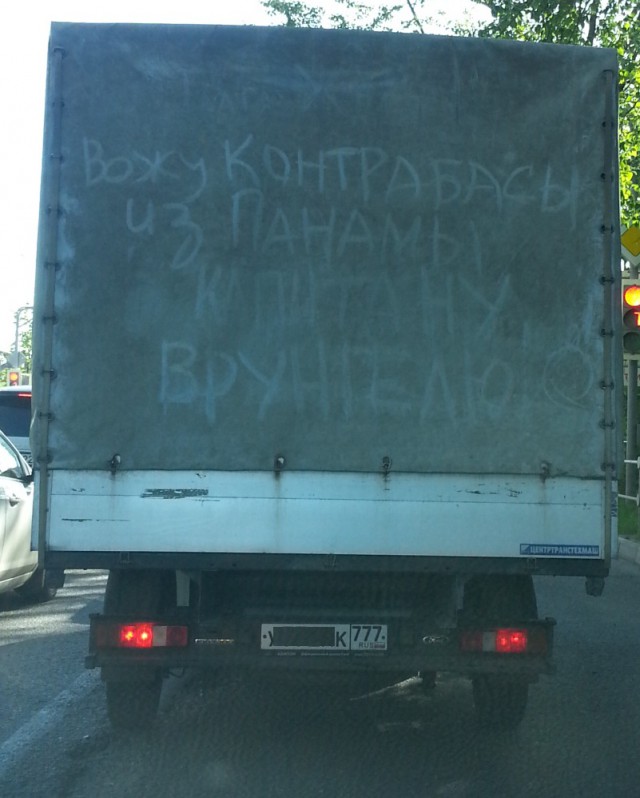 Вожу КОНТРАБАСЫ
из ПАНАМЫ
КАПИТАНУ
ВРУНГЕЛЮ
ЦЕНТРТРАНСТЕХМАШ
У К 777
RUS